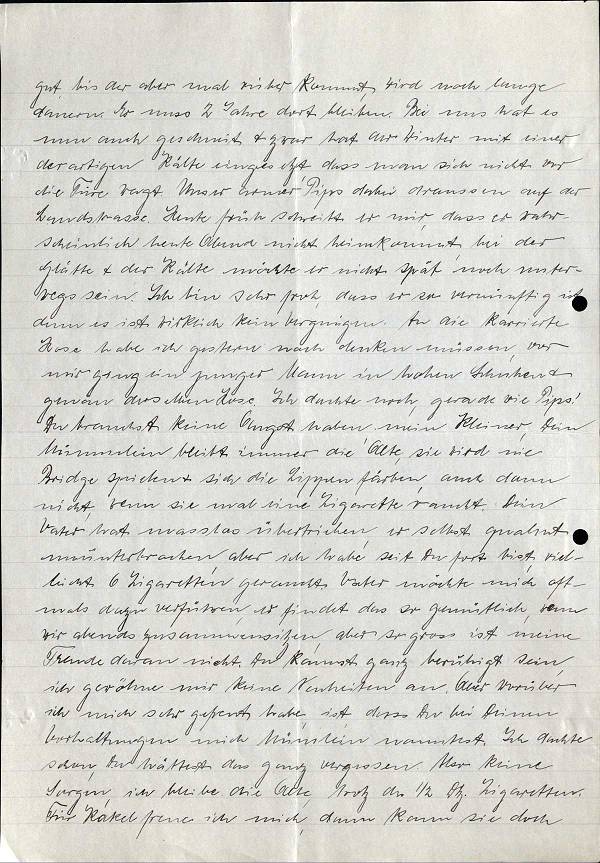 gut, bis der aber mal rüber kommt, wird noch lange
dauern. Er muss 2 Jahre dort bleiben. Bei uns hat es
nun auch geschneit & zwar hat der Winter mit einer
derartigen Kälte eingesetzt dass man sich nicht vor
die Türe wagt. Unser armer Pips dabei draussen auf der
Landstrasse. Heute früh schreibt er mir, dass er wahr-
scheinlich heute Abend nicht heimkommt, bei der
Glätte & der Kälte möchte er nicht spät noch unter-
wegs sein. Ich bin sehr froh, dass er so vernünftig ist
denn es ist wirklich kein Vergnügen. An die karrierte
Hose habe ich gestern noch denken müssen, vor
mir ging ein junger Mann in hohen Schuhen &
genau derselben Hose. Ich dachte noch, gerade wie Pips!
Du brauchst keine Angst haben mein Kleiner, Dein
Mümmlein bleibt immer die Alte, sie wird nie
Bridge spielen & sich die Lippen färben, auch dann
nicht, wenn sie mal eine Zigarette raucht. Dein
Vater hat masslos übertrieben, er selbst qualmt
ununterbrochen aber ich habe, seit Du fort bist, viel-
leicht 6 Zigaretten geraucht. Vater möchte mich oft-
mals dazu verführen, er findet das so gemütlich, wenn
wir abends zusammensitzen, aber so gross ist meine
Freude daran nicht. Du kannst ganz beruhigt sein,
ich gewöhne mir keine Neuheiten an. Aber worüber
ich mich sehr gefreut habe, ist, dass Du bei Deinen
Vorhaltungen mich Mümlein nanntest. Ich dachte
schon, Du hättest das ganz vergessen. Aber keine
Sorgen, ich bleibe die Alte, trotz der 1/2 Dtz. Zigaretten.
Für Käkel freue ich mich, dann kann sie doch